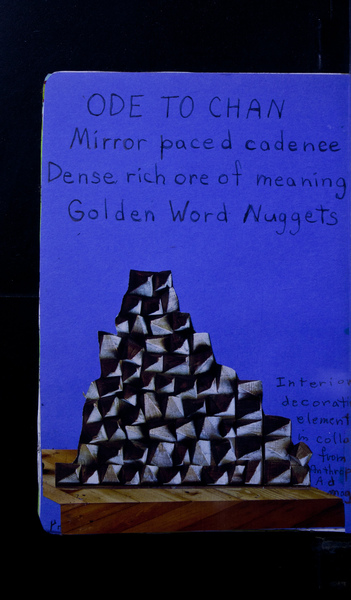 ODE TO CHAN
Mirror paced cadence
Dense rich ore of meaning
Golden Word Nuggets
Interior
decorati
element
in colla
from
Anthrop
Ad